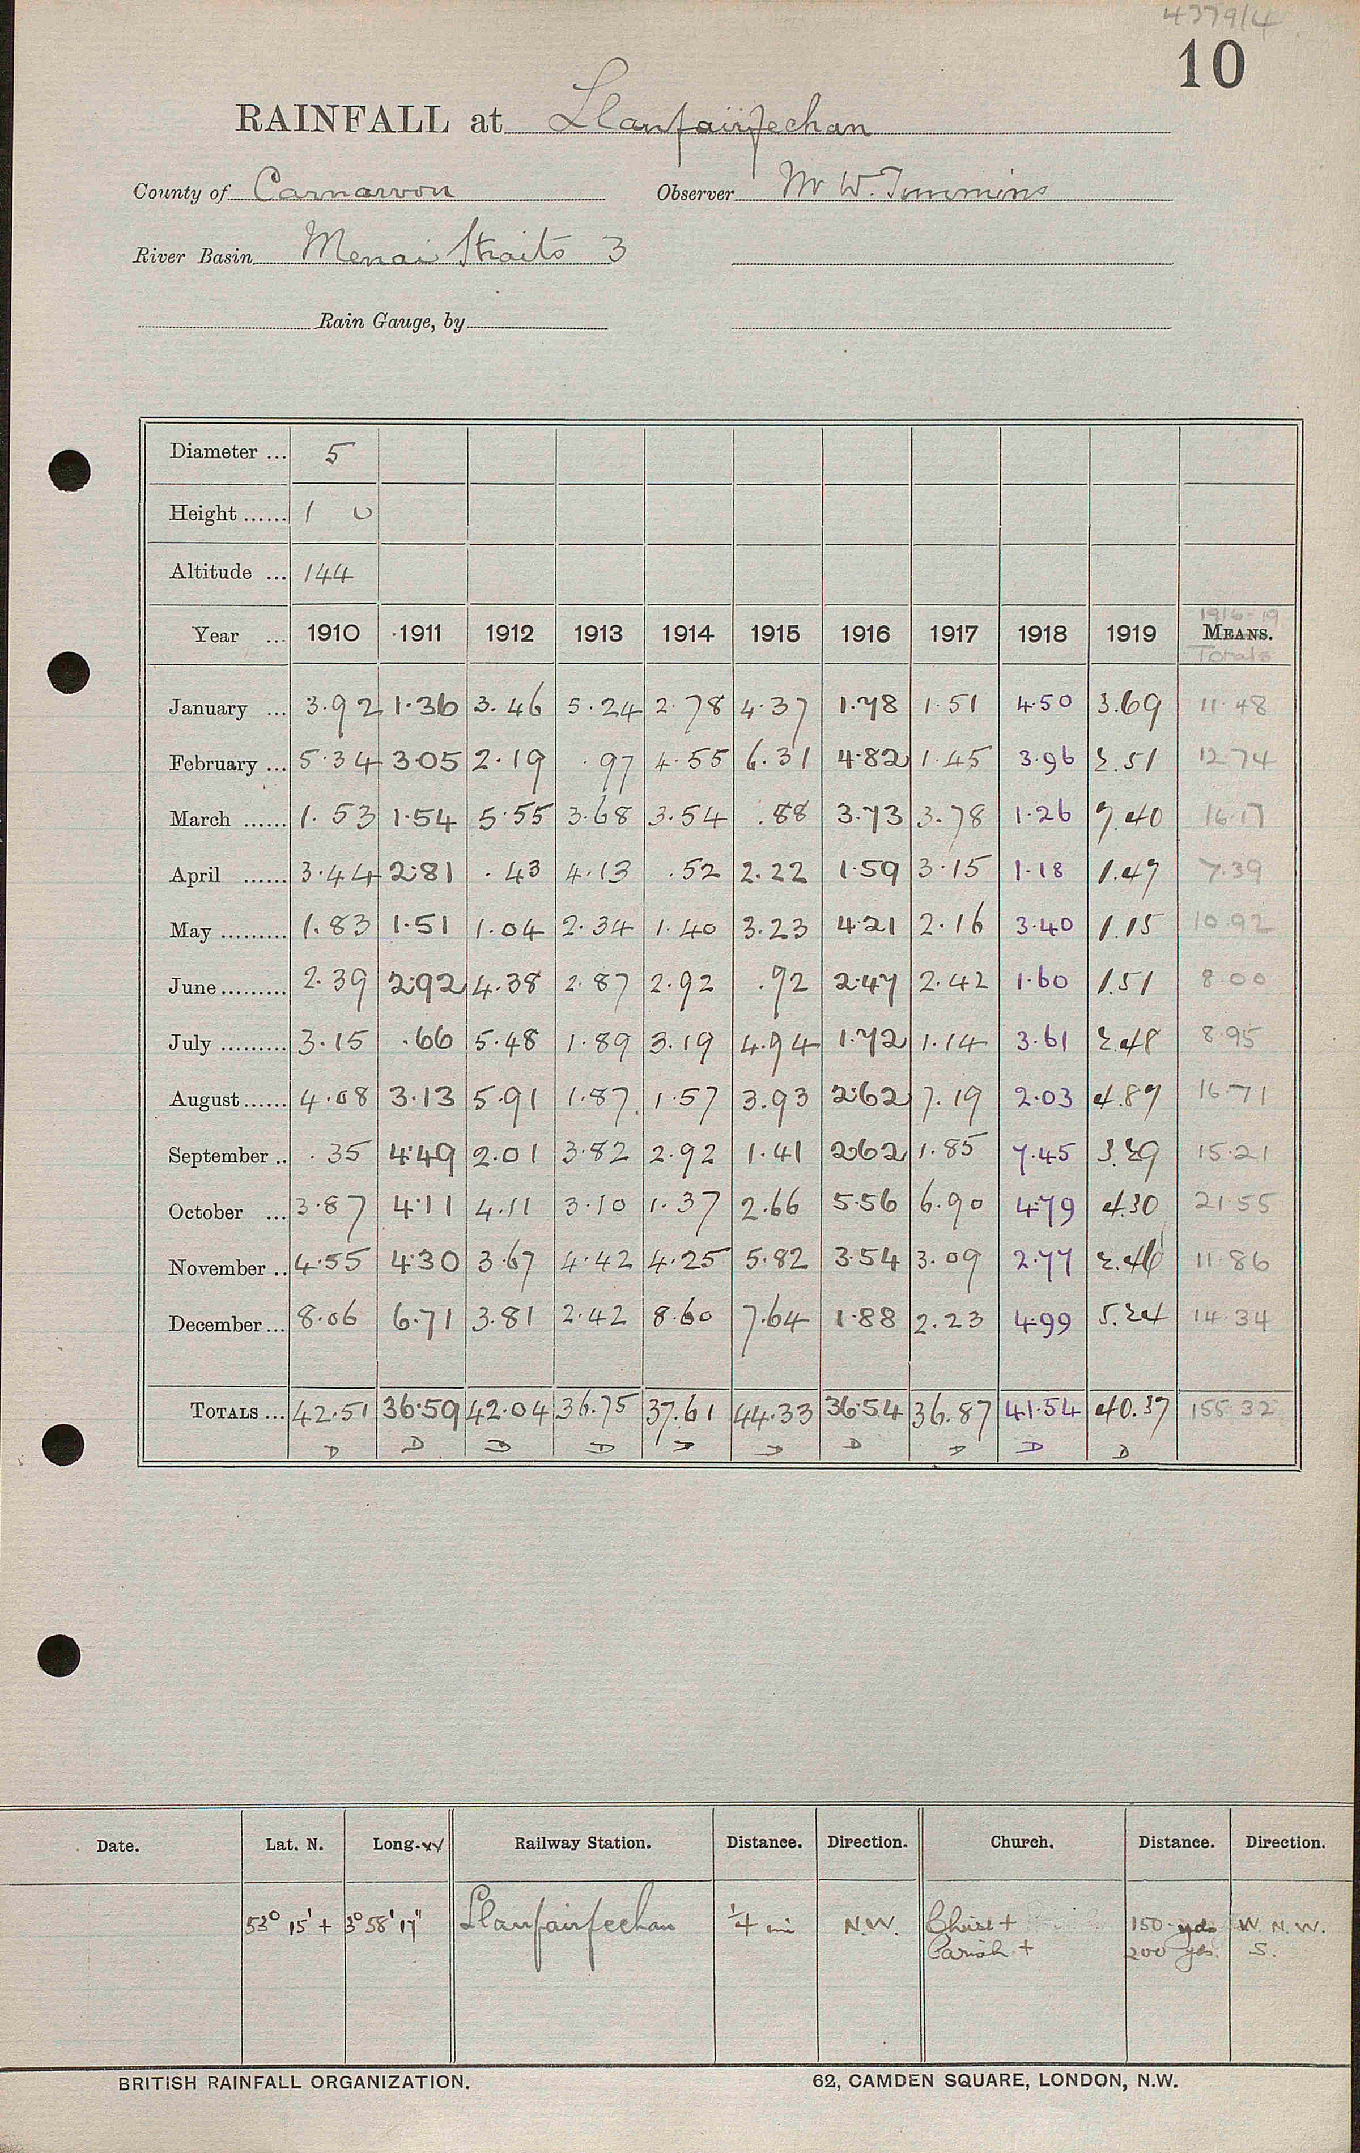 4379/4
10
RAINFALL at Llanfairfechan
County of Carnarvon Observer Mr W. Timmins
River Basin Menai Straits 3
Rain Gauge, by
Diameter ... 5
Height ...... 1 0
Altitude ... 144
1916-19
Year ... 1910 1911 1912 1913 1914 1915 1916 1917 1918 1919 MEANS.
Totals
January ... 3.92 1.36 3.46 5.24 2.78 4.37 1.78 1.51 4.50 3.69 11.48
February ... 5.34 3.05 2.19 .97 4.55 6.31 4.82 1.45 3.96 2.51 12.74
March ...... 1.53 1.54 5.55 3.68 3.54 .88 3.73 3.78 1.26 7.40 16.17
April ...... 3.44 2.81 .43 4.13 .52 2.22 1.59 3.15 1.18 1.47 7.39
May ......... 1.83 1.51 1.04 2.34 1.40 3.23 4.21 2.16 3.40 1.15 10.92
June ......... 2.39 2.92 4.38 2.87 2.92 .92 2.47 2.42 1.60 1.51 8.00
July ......... 3.15 .66 5.48 1.89 3.19 4.94 1.72 1.14 3.61 2.48 8.95
August ...... 4.08 3.13 5.91 1.87 1.57 3.93 2.62 7.19 2.03 4.87 16.71
September .. .35 4.49 2.01 3.82 2.92 1.41 2.62 1.85 7.45 3.29 15.21
October ... 3.87 4.11 4.11 3.10 1.37 2.66 5.56 6.90 4.79 4.30 21.55
November .. 4.55 4.30 3.67 4.42 4.25 5.82 3.54 3.09 2.77 2.46 11.86
December ... 8.06 6.71 3.81 2.42 8.60 7.64 1.88 2.23 4.99 5.24 14.34
TOTALS ... 42.51 36.59 42.04 36.75 37.61 44.33 36.54 36.87 41.54 40.37 155.32
D D D D D D D D D D
Date. Lat. N. Long. W Railway Station. Distance. Direction. Church. Distance. Direction.
53° 15' + 3° 58' 17" Llanfairfechan 1/4 mi N.W. Christ + 150 yds W. N. W.
Parish + 200 yds. S.
BRITISH RAINFALL ORGANIZATION. 62, CAMDEN SQUARE, LONDON, N.W.